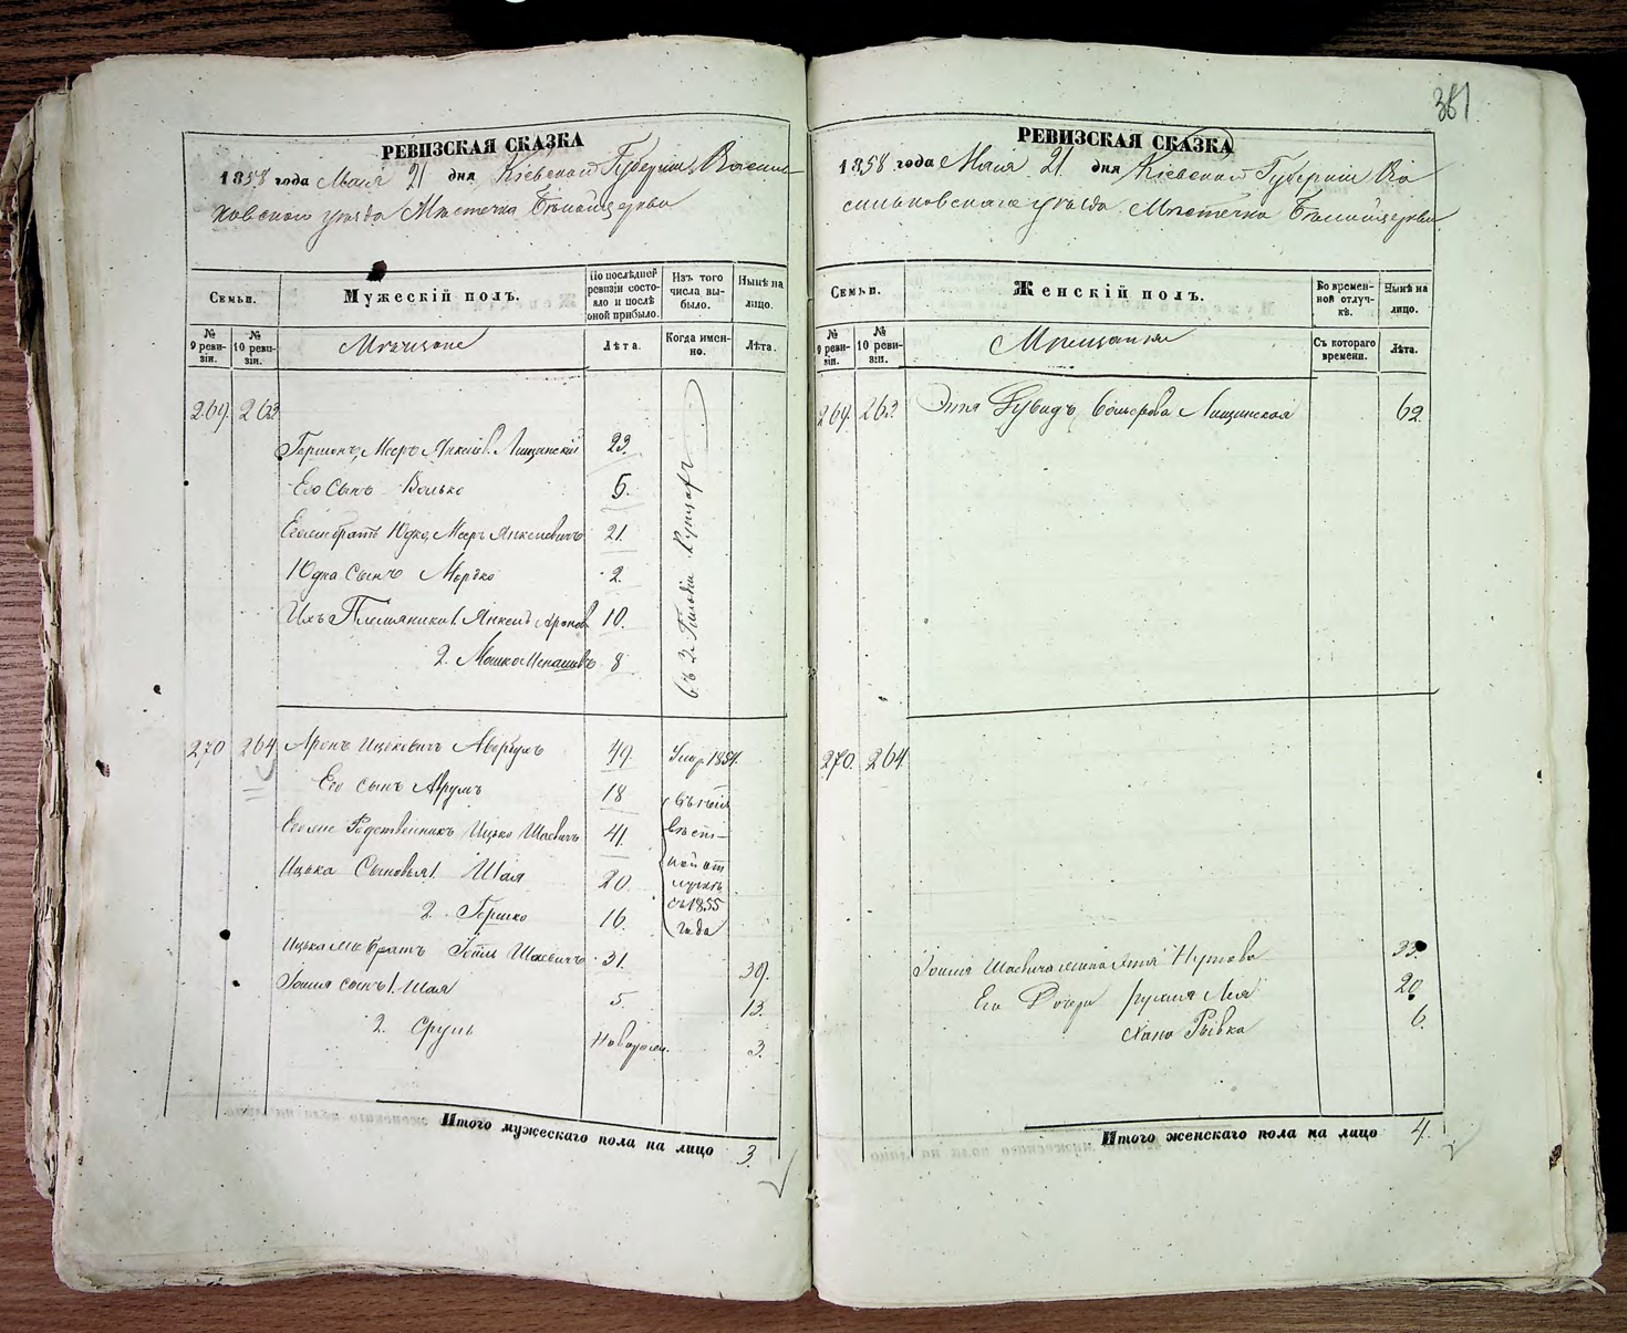 381
РЕВИЗСКАЯ СКАЗКА
1858 года Маія 21 дня Кіевской Губерніи Василь-
ковского уѣзда Мѣстечка Бѣлойцеркви
Семьи.
Мужескій полъ.
По послѣдней ревизіи состояло и послѣ оной прибыло.
Изъ того числа выбыло.
Нынѣ на лицо.
№ 9 ревизіи.
№ 10 ревизіи.
Мѣщане
Лѣта.
Когда именно.
Лѣта.
269. 263
Гершонъ, Мееръ Янкелев. Лищинскій 23.
Его Сынъ Волько 5.
Его же братъ Юдко, Мееръ Янкелевичъ 21
Юдка Сынъ Мордко 2.
Ихъ Племянники 1. Янкель Аронов 10.
2. Мошко 8
Въ 3. Гильдіи
270 264 Аронъ Ицковичъ 49. Умер 1854.
Его сынъ Аврумъ 18
Его же Родственникъ Ицько Шаевичъ 41.
Ицька Сыновья 1. Шая 20.
2. Гершко 16.
въ неиз
вѣст-
ной от
лучкѣ
съ 1855
года
Ицька же братъ Шаевичъ 31. 39.
сынъ 1. Шая 5. 13.
2. Сруль Новорожд. 3.
Итого мужескаго пола на лицо 3.
РЕВИЗСКАЯ СКАЗКА
1858 года Маія 21 дня Кіевской Губерніи Ва
сильковскаго уѣзда Мѣстечка Бѣлойцеркви
Семьи.
Женскій полъ.
Во временной отлучкѣ.
Нынѣ на лицо.
№ 9 ревизіи.
№ 10 ревизіи.
Мѣщанки
Съ котораго времени.
Лѣта.
269. 263. Этя Лищинская 62.
270. 264.
Шаевича жена Этя 33.
Его Дочери Лея 20
Хана Рывка 6.
Итого женскаго пола на лицо 4.